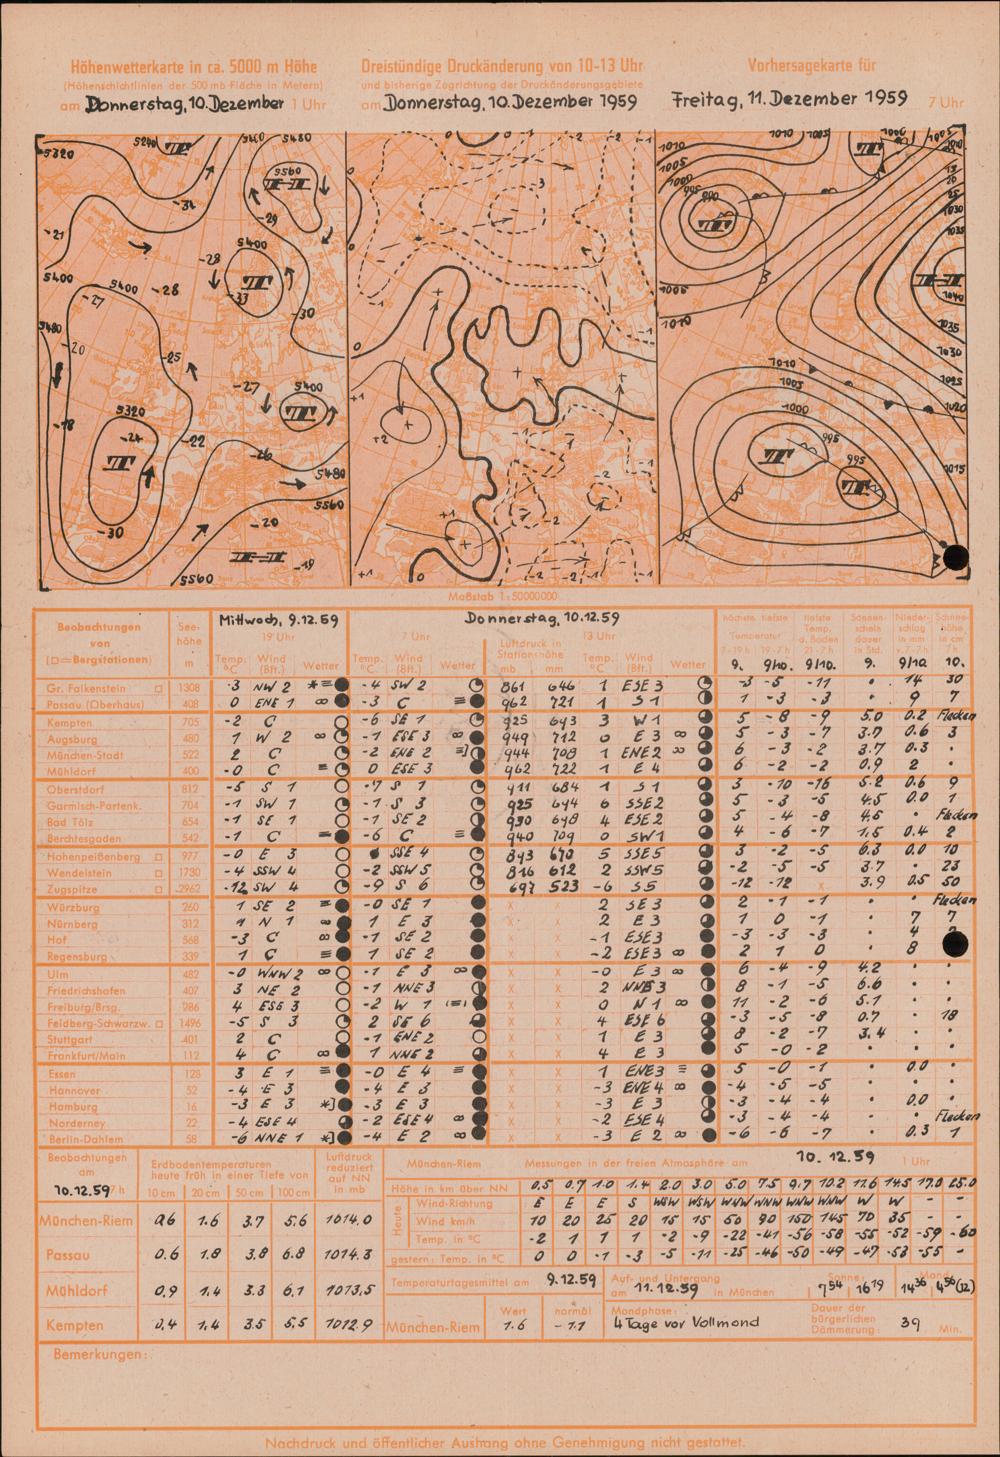 Höhenwetterkarte in ca. 5000 m Höhe
(Höhenschichtlinien der 500 mb Fläche in Metern)
am Donnerstag, 10. Dezember 1 Uhr
Dreistündige Druckänderung von 10-13 Uhr
und bisherige Zugrichtung der Druckänderungsgebiete
am Donnerstag, 10. Dezember 1959
Vorhersagekarte für
Freitag, 11. Dezember 1959 7 Uhr
Maßstab 1:50000000
Beobachtungen von (□=Bergstationen)
Seehöhe m
Mittwoch, 9.12.59
19 Uhr
Donnerstag, 10.12.59
7 Uhr
13 Uhr
Temp. °C Wind (Bft.) Wetter
Temp. °C Wind (Bft.) Wetter
Luftdruck in Stationshöhe mb mm
Temp. °C Wind (Bft.) Wetter
höchste tiefste Temperatur 7-19 h 19-7 h
tiefste Temp. a. Boden 21-7 h
Sonnenscheindauer in Std.
Niederschlag in mm v. 7-7 h
Schneehöhe in cm 7 h
9. 9/10. 9/10. 9. 9/10 10.
Gr. Falkenstein □ 1308 -3 NW 2 -4 SW 2 861 646 1 ESE 3 -3 -5 -11 • 14 30
Passau (Oberhaus) 408 0 ENE 1 ∞ -3 C ≡ 962 721 1 S 1 1 -3 -3 • 9 7
Kempten 705 -2 C -6 SE 1 925 693 3 W 1 5 -8 -9 5.0 0.2 Flecken
Augsburg 480 1 W 2 ∞ -1 ESE 3 ∞ 949 712 0 E 3 ∞ 5 -3 -7 3.7 0.6 3
München-Stadt 522 2 C -2 ENE 2 944 708 1 ENE 2 ∞ 6 -3 -2 3.7 0.3 •
Mühldorf 400 -0 C = 0 ESE 3 962 722 1 E 4 6 -2 -2 0.9 2 •
Oberstdorf 812 -5 S 1 -7 S 1 911 684 1 S 1 3 -10 -16 5.2 0.6 9
Garmisch-Partenk. 704 -1 SW 1 -1 S 3 925 694 6 SSE 2 5 -3 -5 4.5 0.0 1
Bad Tölz 654 -1 SE 1 -1 SE 2 930 698 4 ESE 2 5 -4 -8 4.6 • Flecken
Berchtesgaden 542 -1 C = -6 C ≡ 940 709 0 SW 1 4 -6 -7 1.5 0.4 2
Hohenpeißenberg □ 977 -0 E 3 SSE 4 893 670 5 SSE 5 3 -2 -5 6.3 0.0 10
Wendelstein □ 1730 -4 SSW 4 -2 SSW 5 816 612 2 SSW 5 -2 -5 -5 3.7 • 23
Zugspitze □ 2962 -12 SW 4 -9 S 6 697 523 -6 S 5 -12 -12 x 3.9 0.5 50
Würzburg 260 1 SE 2 = -0 SE 1 x x 2 SE 3 2 -1 -1 • • Flecken
Nürnberg 312 N 1 ∞ 1 E 3 x x 2 E 3 1 0 -1 • 7 7
Hof 568 -3 C ∞ -1 SE 2 x x -1 ESE 3 -3 -3 -3 • 4
Regensburg 339 1 C = 1 SE 2 x x -2 ESE 3 ∞ 2 1 0 • 8
Ulm 482 -0 WNW 2 ∞ -1 E 3 ∞ x x -0 E 3 ∞ 6 -4 -9 4.2 • •
Friedrichshafen 407 3 NE 2 -1 NNE 3 x x 2 NNE 3 8 -1 -5 6.6 • •
Freiburg/Brsg. 286 4 ESE 3 -2 W 1 (≡) x x 0 N 1 ∞ 11 -2 -6 5.1 • •
Feldberg-Schwarzw. □ 1496 -5 S 3 2 SE 6 x x 4 ESE 6 -3 -5 -8 0.7 • 18
Stuttgart 401 2 C -1 ENE 2 x x 1 E 3 8 -2 -7 3.4 • •
Frankfurt/Main 112 4 C ∞ 1 NNE 2 x x 4 E 3 5 -0 -2 • • •
Essen 128 3 E 1 ≡ -0 E 4 = x x 1 ENE 3 = 5 -0 -1 • 0.0 •
Hannover 52 -4 E 3 -4 E 3 x x -3 ENE 4 ∞ -4 -5 -5 • • •
Hamburg 16 -3 E 3 *] -3 E 3 x x -3 E 3 -3 -4 -4 • 0.0 •
Norderney 22 -4 ESE 4 -2 ESE 4 ∞ x x -2 ESE 4 -3 -4 -4 • • Flecken
Berlin-Dahlem 58 -6 NNE 1 *] -4 E 2 ∞ x x -3 E 2 ∞ -6 -6 -7 • 0.3 1
Beobachtungen am 10.12.59 7 h
Erdbodentemperaturen heute früh in einer Tiefe von
10 cm 20 cm 50 cm 100 cm
Luftdruck reduziert auf NN in mb
München-Riem 0.6 1.6 3.7 5.6 1014.0
Passau 0.6 1.8 3.8 6.8 1014.3
Mühldorf 0.9 1.4 3.3 6.1 1013.5
Kempten 0.4 1.4 3.5 5.5 1012.9
München-Riem Messungen in der freien Atmosphäre am 10.12.59 1 Uhr
Höhe in km über NN 0.5 0.7 1.0 1.4 2.0 3.0 5.0 7.5 9.7 10.2 11.6 14.5 17.0 25.0
Heute
Wind-Richtung E E E S WSW WSW WNW WNW WNW WNW W W - -
Wind km/h 10 20 25 20 15 15 50 90 150 145 70 35 - -
Temp. in °C -2 1 1 1 -2 -9 -22 -41 -56 -58 -55 -52 -59 -60
gestern: Temp. in °C 0 0 -1 -3 -5 -11 -25 -46 -50 -49 -47 -53 -55 -
Temperaturtagesmittel am 9.12.59
Auf- und Untergang am 11.12.59 in München
Sonne: 7 54 16 19
Mond: 14 36 4 56 (12.)
München-Riem
Wert 1.6
normal -1.1
Mondphase:
4 Tage vor Vollmond
Dauer der bürgerlichen Dämmerung: 39 Min.
Bemerkungen:
Nachdruck und öffentlicher Aushang ohne Genehmigung nicht gestattet.